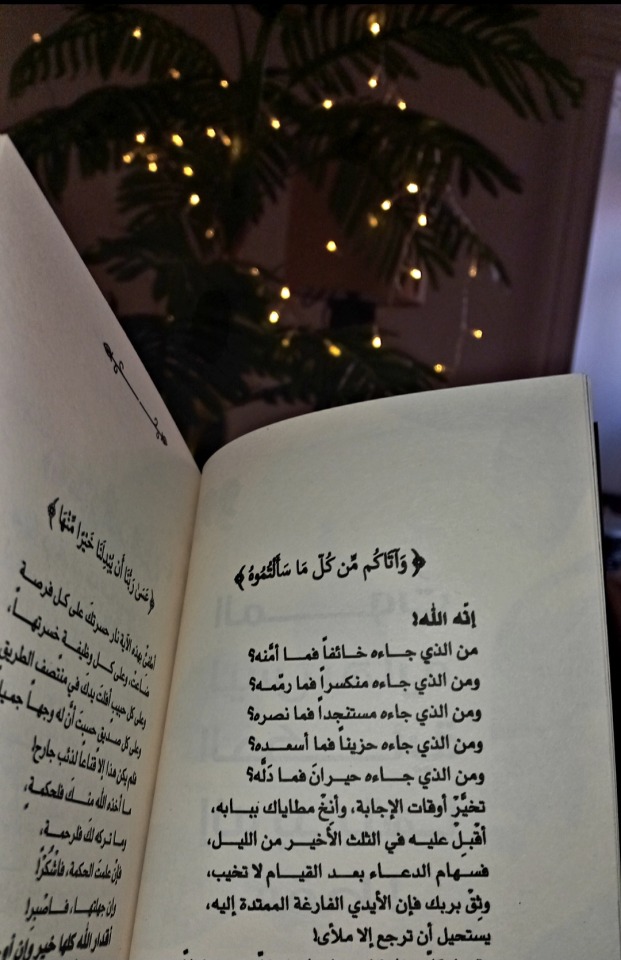 ﴿ وَآتَاكُم مِّن كُلِّ مَا سَأَلْتُمُوهُ ﴾
إنّه الله!
من الذي جاءه خائفاً فما أمَّنه؟
ومن الذي جاءه منكسراً فما رمَّمه؟
ومن الذي جاءه مستنجداً فما نصره؟
ومن الذي جاءه حزيناً فما أسعده؟
ومن الذي جاءه حيرانَ فما دَلَّه؟
تخيَّرْ أوقات الإجابة، وأنِخْ مطاياك ببابه،
أقبِلْ عليه في الثلث الأخير من الليل،
فسهام الدعاء بعد القيام لا تخيب،
وثِقْ بربك فإن الأيدي الفارغة الممتدة إليه،
يستحيل أن ترجع إلا ملأى!
﴿ عَسَىٰ رَبُّنَا أَن يُبْدِلَنَا خَيْرًا مِّنْهَا ﴾
بهذه الآية نار حسرتك على كل فرصة
ضاعت، وعلى كل وظيفة خسرتها،
وعلى كل حبيب أفلتَ يدكَ في منتصف الطريق
وعلى كل صديق حسبتَ أنَّ له وجهاً
فلم يكن هذا إلا قناعاً لذئب جارح!
ما أخذه الله منك فلحكمة،
وما تركه لكَ فلرحمة،
فإن علمتَ الحكمة، فاشكُرْ!
وإن جهلتها، فاصبر!
أقدار الله كلها خير وإن